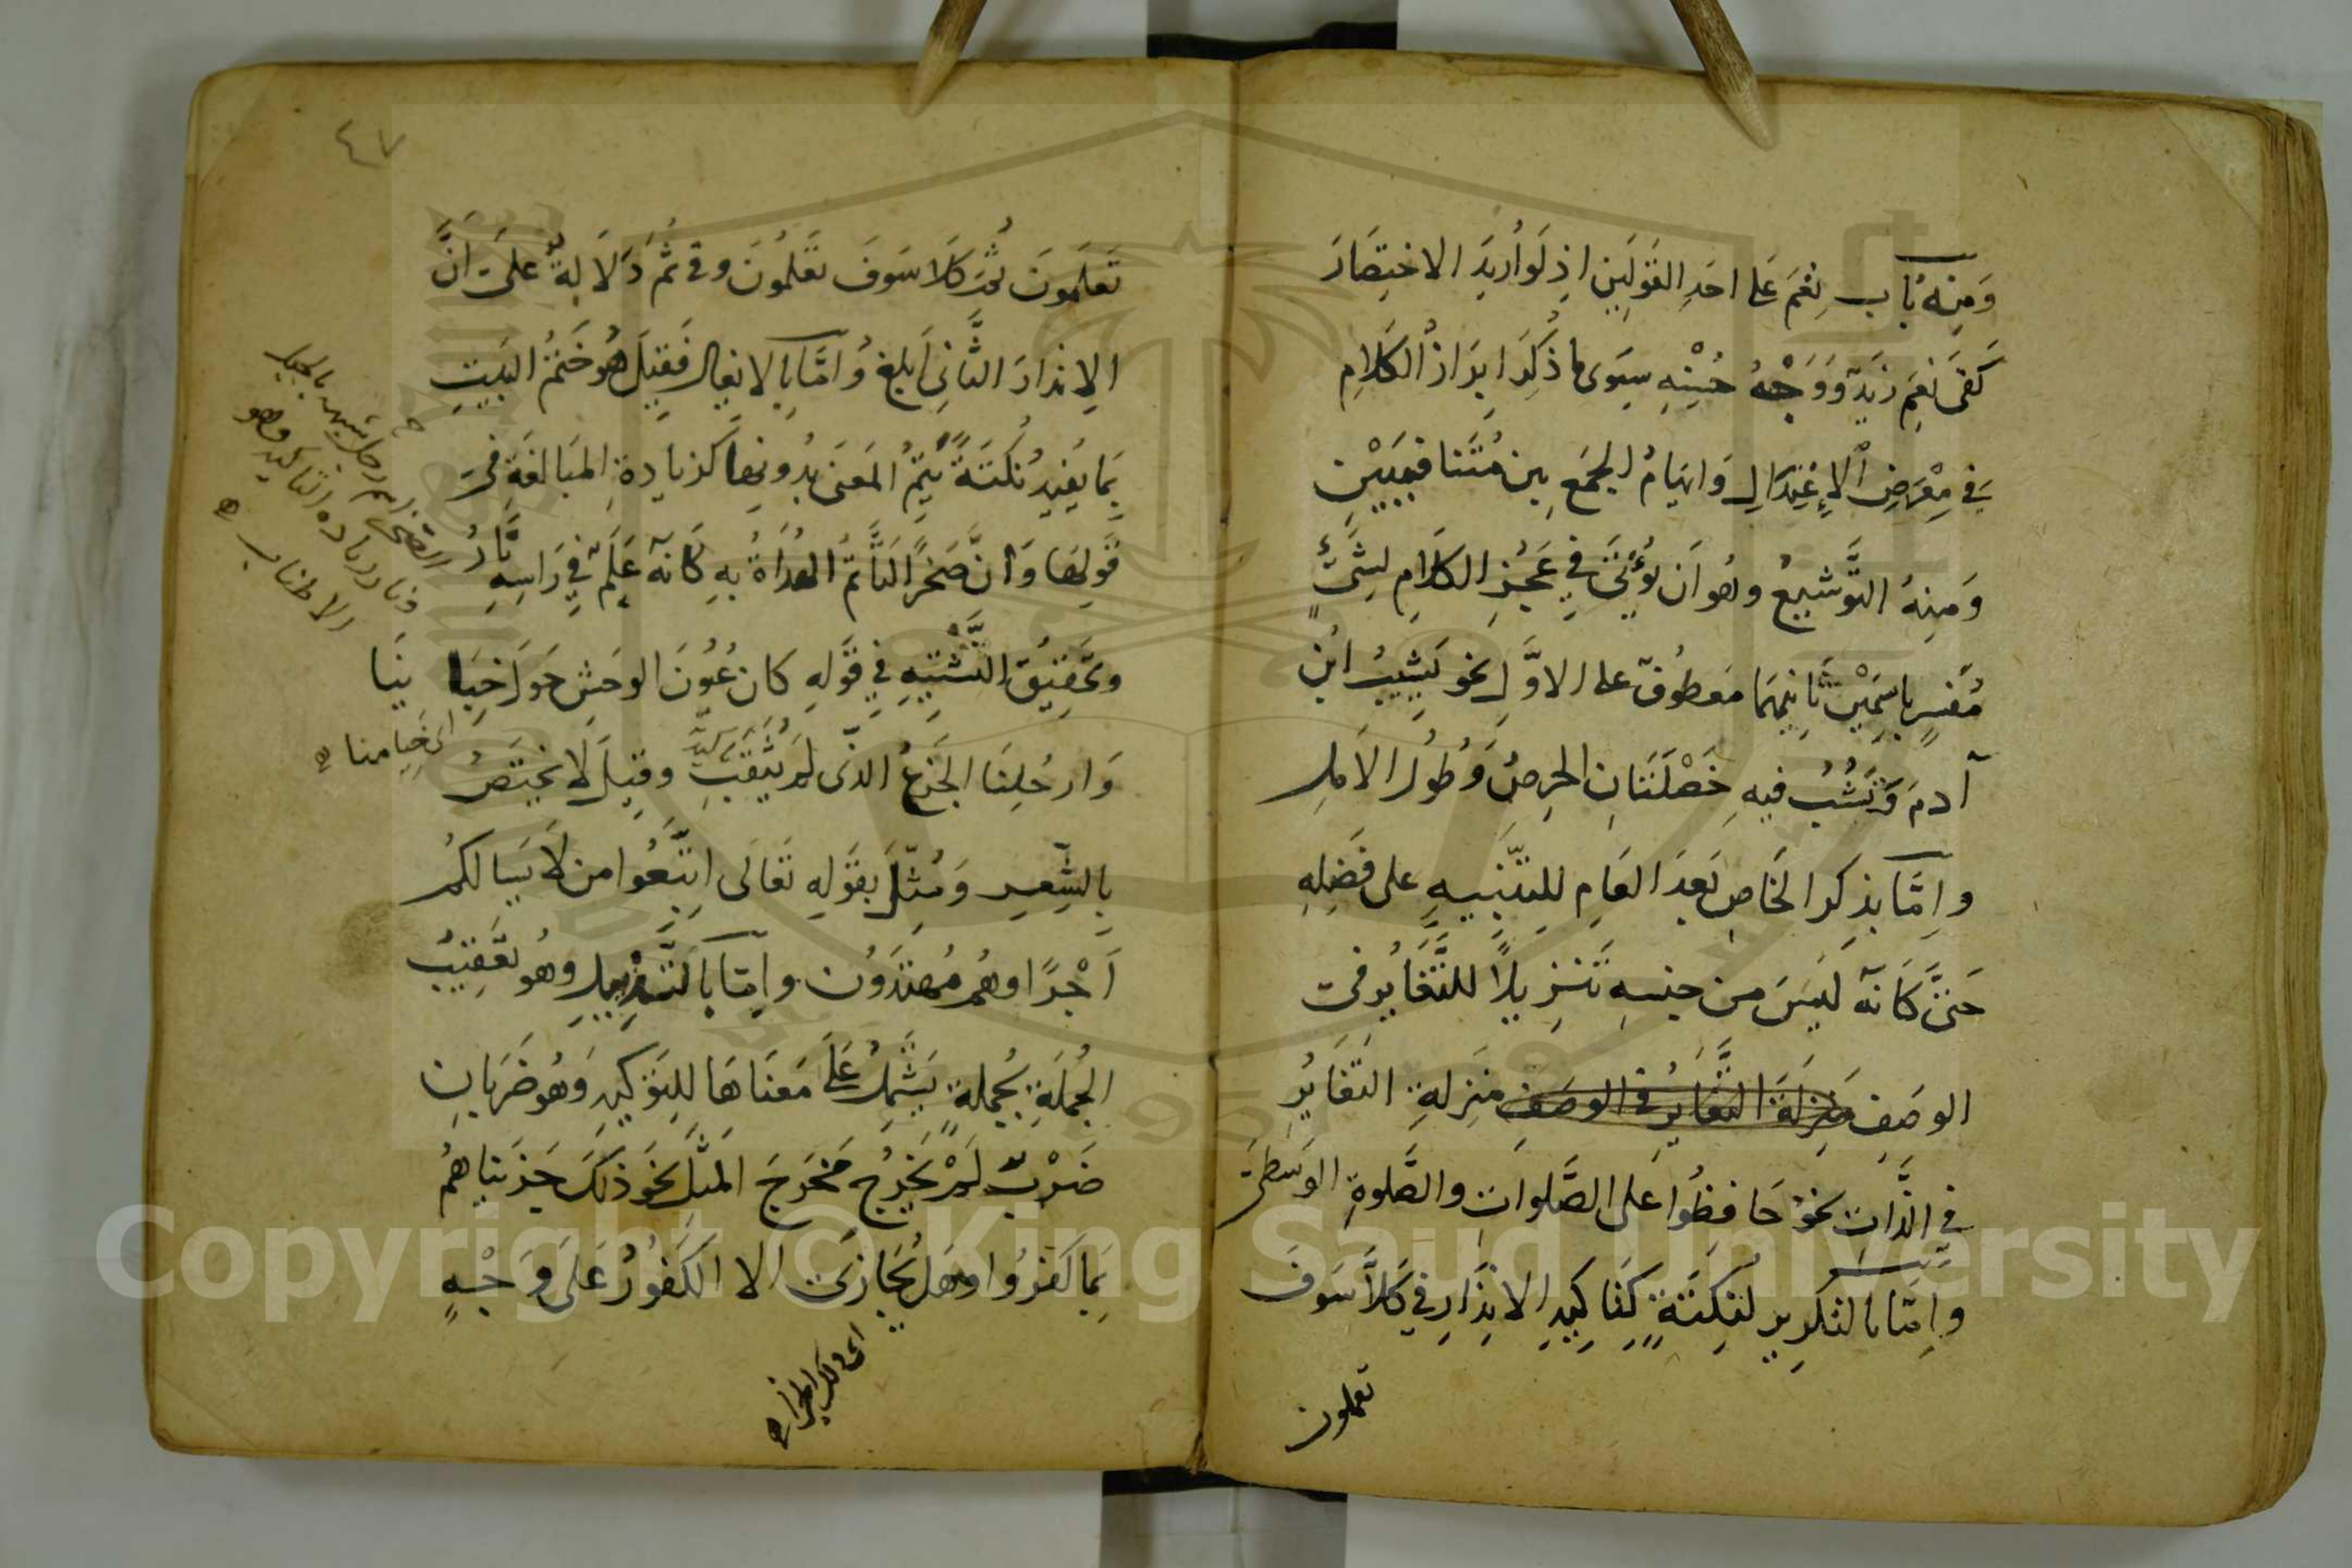 وَمِنهُ بَاب نِعْمَ عَلى احَدِ القَولَينِ اذ لَو اُرِيدَ الاختِصَارَ
كَفى نِعمَ زَيدٌ وَوَجْهُ حُسْنِهِ سِوَى ما ذُكِرَ ابرَازُ الكَلامِ
فى مِعْرَضِ الاِعْتِدَالِ وَايهَامُ الجَمعِ بين مُتَنَافِيَيْنِ
وَمِنهُ التَّوشيعُ وهو اَن يُؤْتى فِي عَجُزِ الكَلَامِ بمُثَنًّى
مُفَسرٍ باسمَيْنِ ثَانيهِمَا مَعطُوفٌ على الاوَّلِ نحو يَشِيبُ ابنُ
آدمَ وَيَشُبُّ فيهِ خَصْلَتَانِ الحِرصُ وَطُولُ الاَملِ
واِمَّا بذِكرِ الخَاصِ بَعدَ العَامِ لِلتَّنبِيهِ على فَضلِهِ
حَتىَّ كَانَّه لَيسَ من جِنسِهِ تَنزِيلًا للتَّغَايُرِ فى
الوصَفِ مَنزِلَةَ التَّغَايُرِ فى الوصَفِ مَنزِلةِ التَّغَايُرِ
فى الذَّاتِ نحو حَافِظُوا على الصَّلواتِ والصَّلوةِ الوسَطىَ
واِمَّا بالتَّكرِيرِ لنكتَةٍ كتَاكِيدِ الانذَارِ فى كَلاَّ سَوفَ
تعلمون
٤٧
تَعلَمونَ ثُمَّ كَلاَّ سَوفَ تَعلَمُونَ وفى ثُمَّ دَلَالةٌ عَلى اَنَّ
الاِنذارَ الثَّانِى اَبلغُ وَامَّا بِالايغِالِ فَقِيلَ هُو خَتمُ البَيتِ
بِمَا يُفِيدُ نُكتَةً يَتِمُّ المَعنَى بِدُونِها كزيادةِ المبَالغَةِ فى
قَولِهَا وَاِنَّ صَخرًا لَتَاتَمُّ الهُدَاةُ بِهِ كَانَّه عَلَمٌ فِي رَاسِهِ نَارُ
وتَحقِيقِ التَّشبِيهِ فِي قَولِهِ كان عُيُونَ الوحَشِ حَولَ خِبَا ئنَا
وَارحُلِنَا الجَزعُ الذى لَم يُثَقَّبِ وقِيلَ لَا يختَصُّ
اى خيامنا
بِالشِّعرِ وَمُثِّلَ بقَولِهِ تَعَالَى اِتَّبِعُوا من لَا يَسالكُم
اَجْرًا وهُم مُهتَدَوُن واِمَّا بالتَّذيِيلِ وهُو تَعقِيبُ
الجُملَةِ بجُملةٍ يَشتَمِلُ عَلَى مَعنَاهَا لِلتَوكيدِ وَهُو ضَربَانِ
ضَرْبٌ لَمْ يَخرُج مَخرَجَ المَثَلِ نحَو ذلَكَ جَزَيناهُم
بِمَا كَفَرُوا وهَل نُجَازى الا الكَفُورُ عَلَى وَجْهٍ